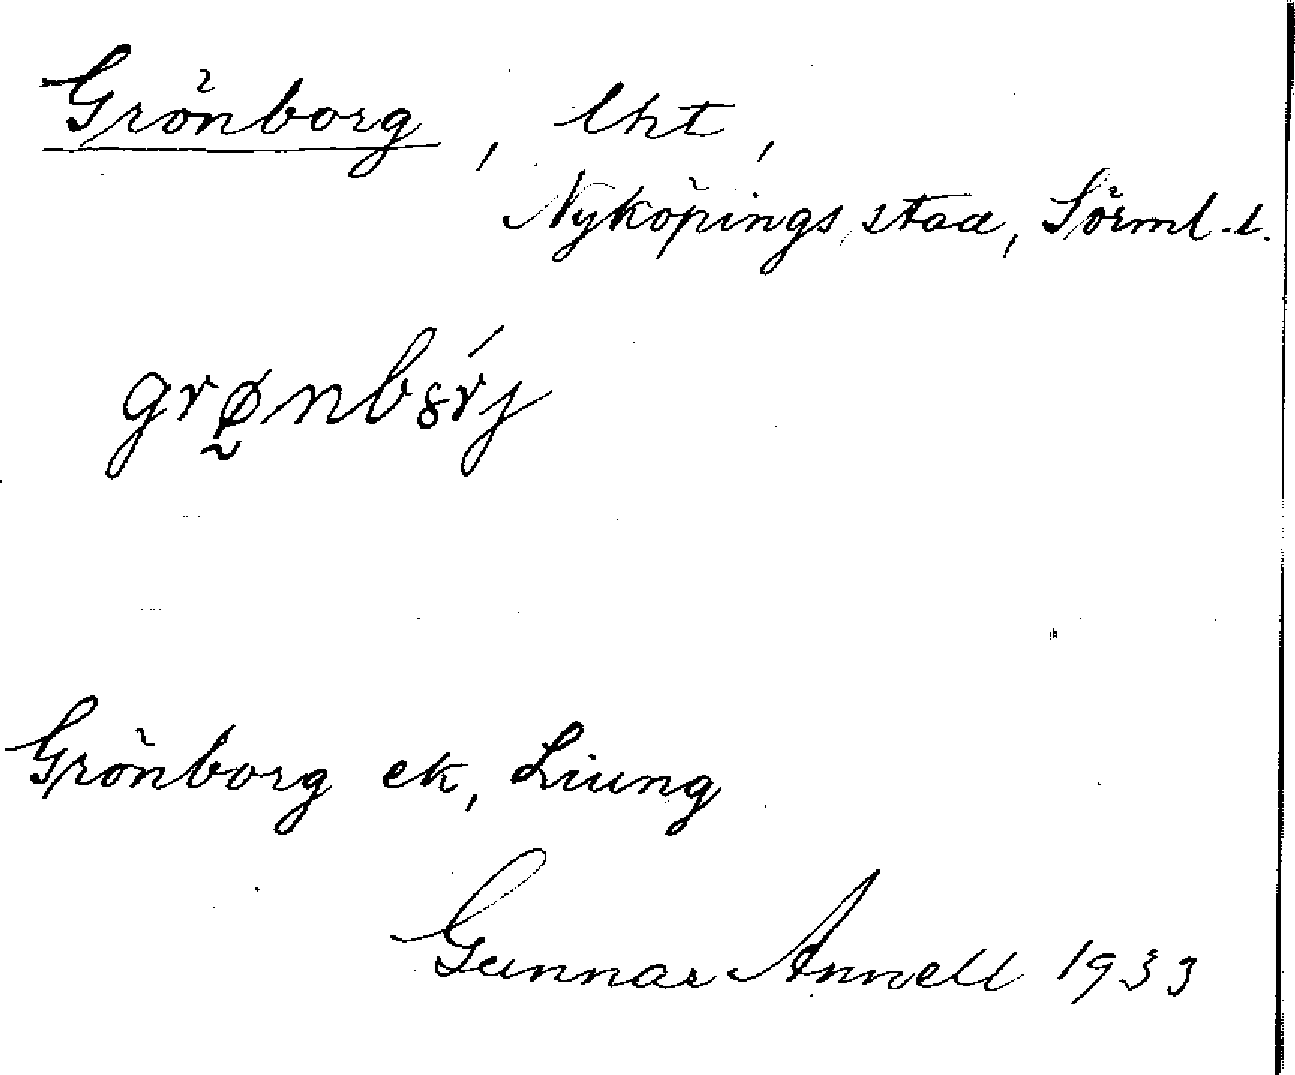 Grönborg, lht,
Nyköpings stad, Sörml. l.
grø̰nbȣŕj
Grönborg ek, Liung
Gunnar Annell 1933